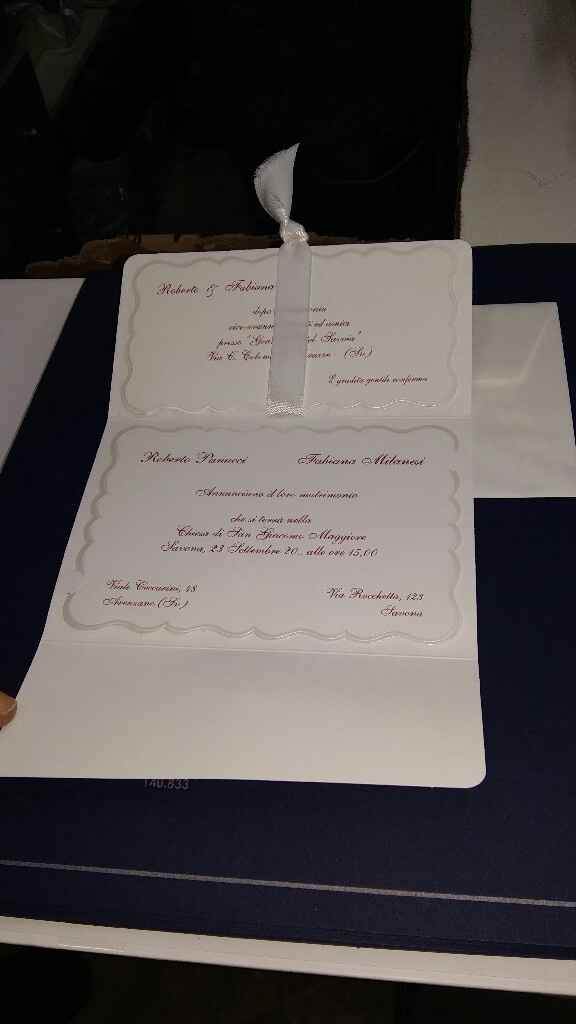 Roberto & Fabiana
dopo
ed amici
presso
Via C. Colom (Sv.)
È gradita gentile conferma
Roberto Panucci Fabiana Milanesi
Annunciano il loro matrimonio
che si terrà nella
Chiesa di San Giacomo Maggiore
Savona, 23 Settembre 20.. alle ore 15,00
Viale 48 Via Rocchetta, 123
(Sv.) Savona
140.833